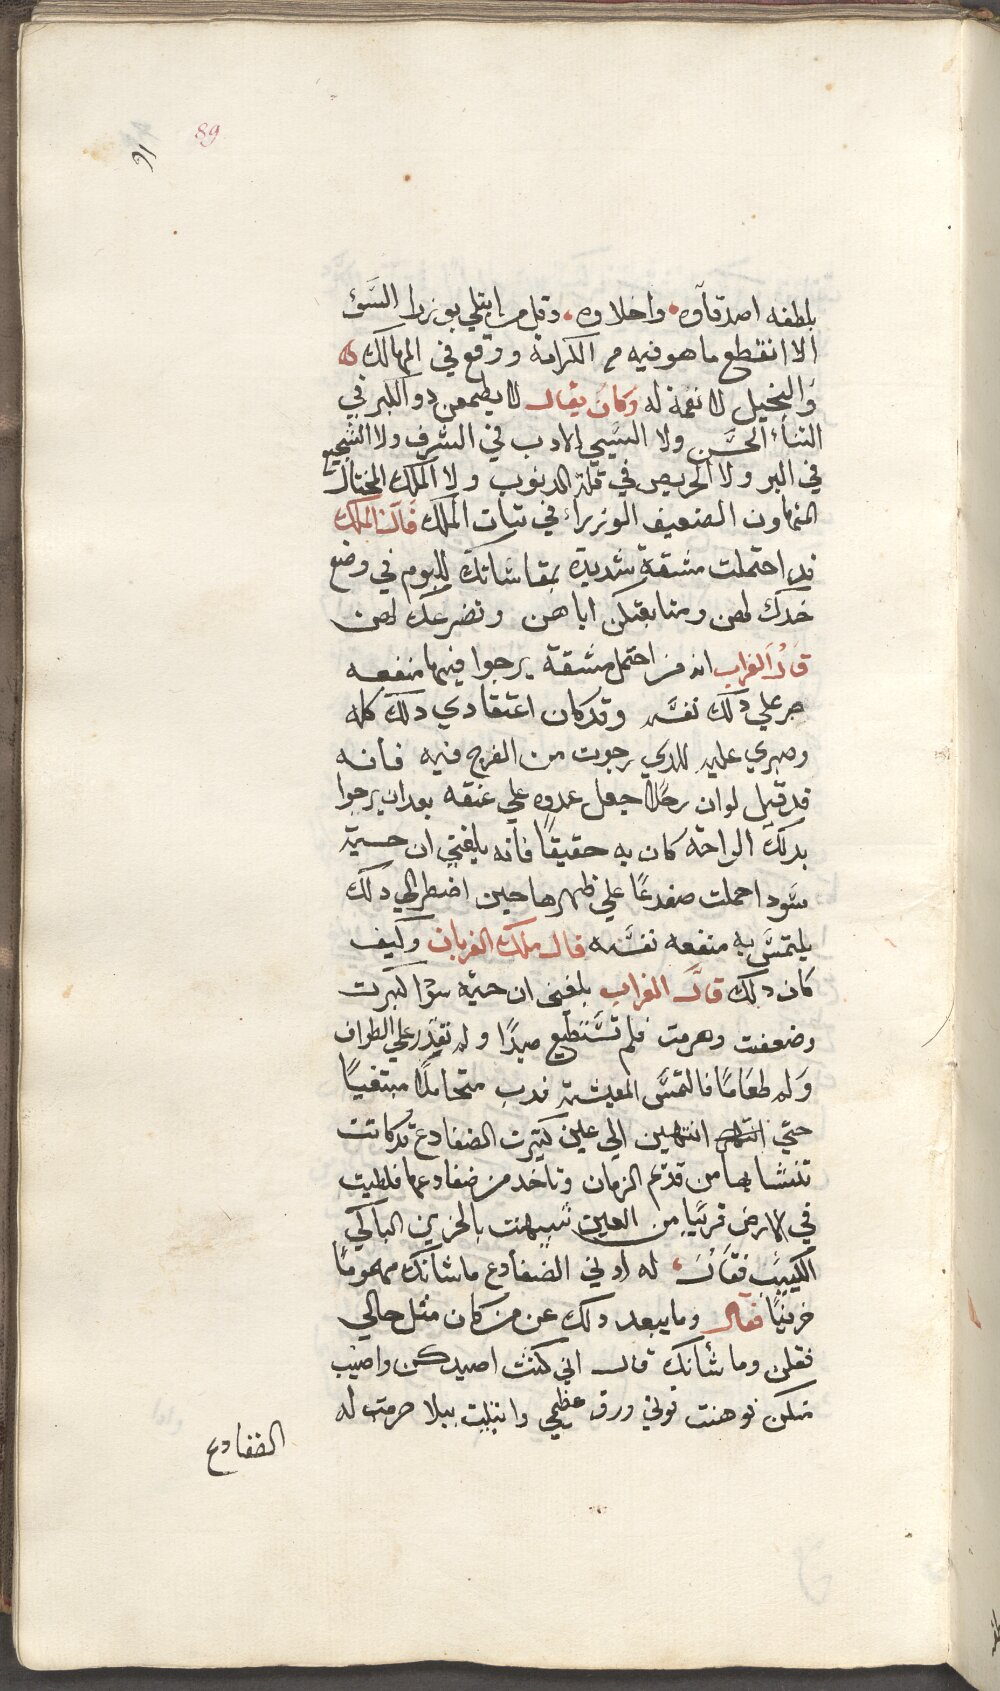 89
91
بلطفه اصدقآوه واخلاوه، وقل من ابتلي بوزيرا السَوء
الا انقطع ما هو فيه من الكرامة ووقع في المهالك
والبخيل لا نعمة له وكان يقال لا يطمعن ذو الكبر في
الثناء الحسَن ولا السَيي الادب في الشرف ولا الشحيح
في البر ولا الحريص في قلة الدنوب ولا الملك المختال
المتهاون الضعيف الوزراء في تبات الملك قال الملك
قد احتملت مشقة شديدة بمقاساتك للبوم في وضع
خدك لهن ومتابعتكن اياهن وتضرعك لهن
قال الغراب انه من احتمل مشقة يرجوا فيها منفعه
صبر علي دلك نفسَه وقد كان اعتقادي دلك كله
وصبري عليه للدي رجوت من الفرج فيه فانه
قد قيل لو ان رجلًا جعل عدوه علي عنقه بعد ان يرجوا
بدلك الراحة كان به حقيقًا فانه بلغني ان حية
سَودا حملت ضفدعًا علي ظهرها حين اضطر الي دلك
يلتمسَ به منفعه نفسَه قال ملك الغربان وكيف
كان دلك قال الغراب بلغني ان حيّة سودا كبرت
وضعفت وهرمت فلم تسَتطيع صيدًا ولم تقدر علي الطواف
وَلم طعَامًا فالتمسَ المعيشة فدب متحاملًا مبتغيًا
حتي انتهين الي عين كتيرت الضفادع قد كانت
تنشا بها من قديم الزمان وتاخد من ضفادعها فلطيت
في الارض قريبًا من العين تشبهت بالحزين الباكي
الكييب فقال له ادني الضفادع ما شانك مهمومًا
حزينًا فقال وما يبعد دلك عن من كان مثل حالي
فقلن وما شأنك قال اني كنت اصيدكن واصيب
منكن فوهنت قوتي ورق عظمي وابتليت ببلا حرمت له
الضفادع